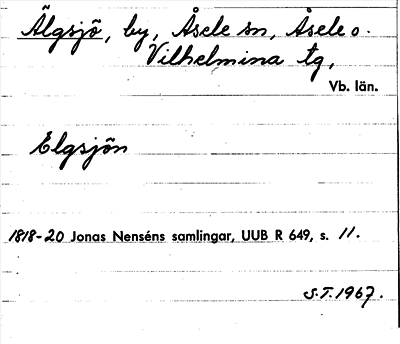 Älgsjö, by, Åsele sn, Åsele o.
Vilhelmina tg,
Vb. län.
Elgsjön
1818-20 Jonas Nenséns samlingar, UUB R 649, s. 11.
S.T. 1967.